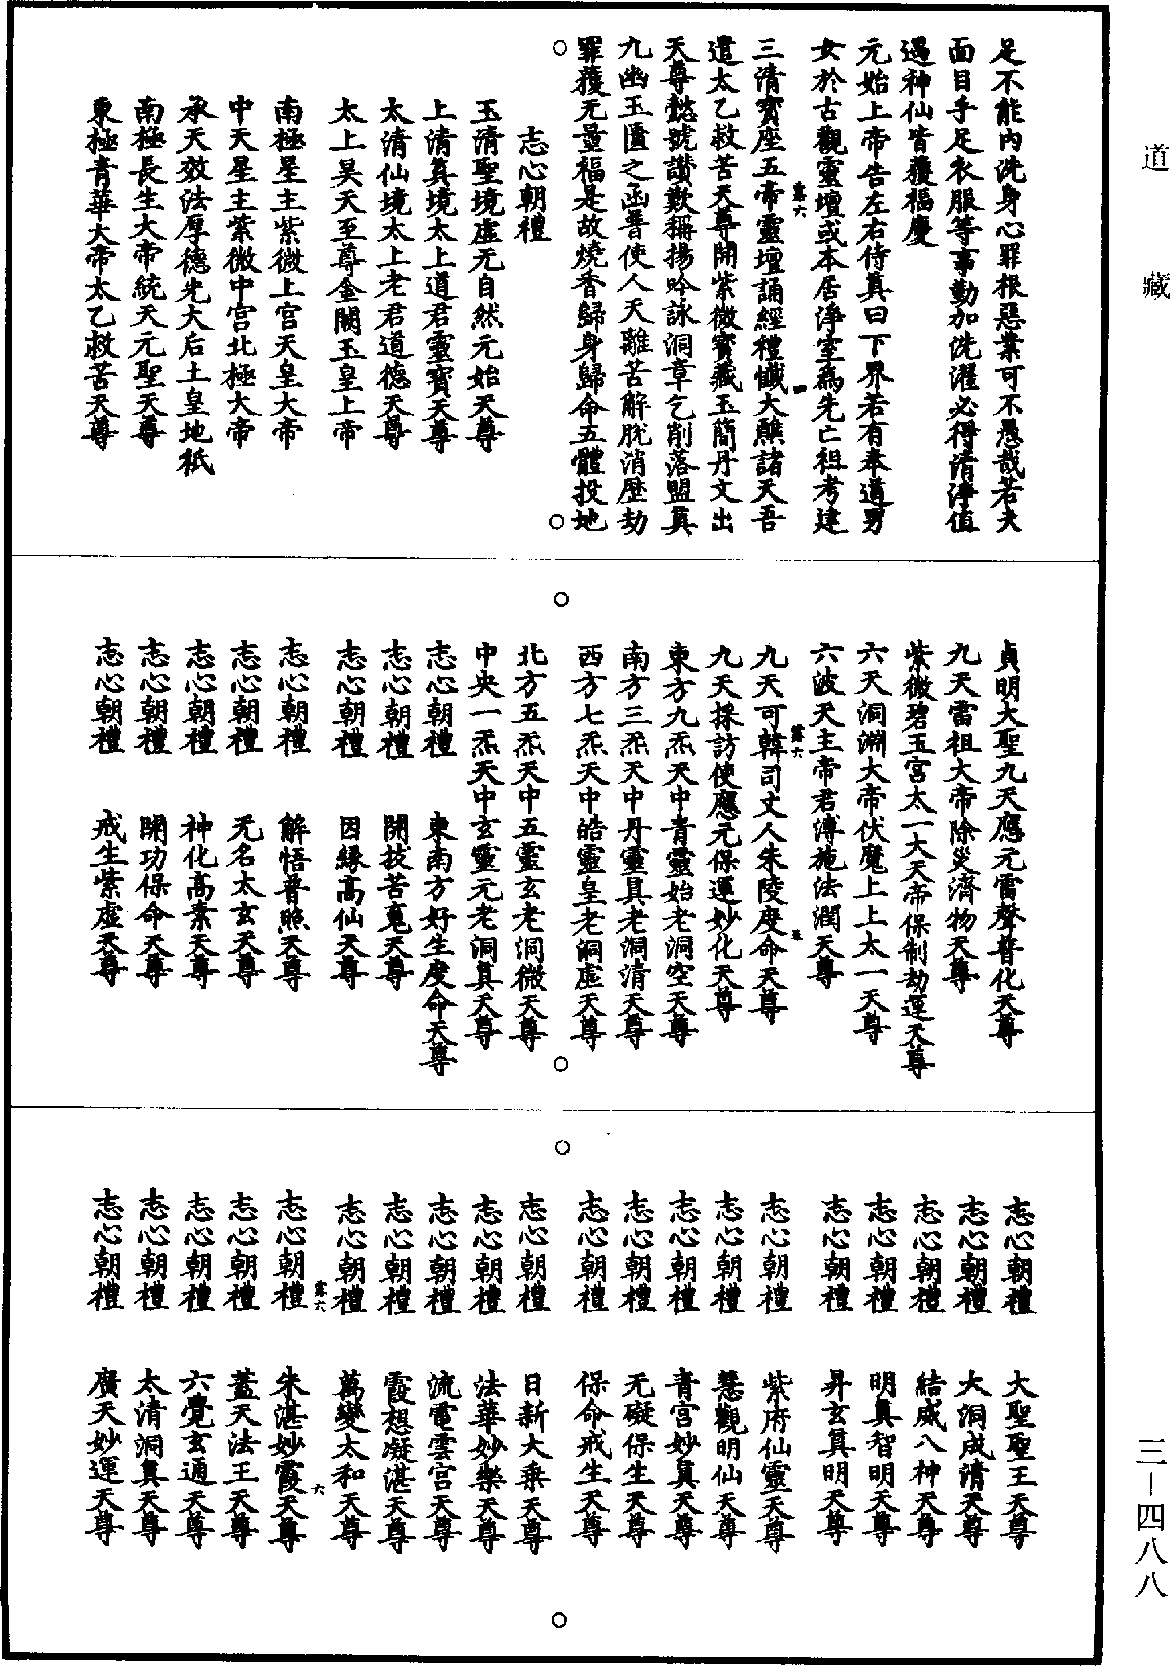 道藏
足不能內洗身心罪根惡業可不愚哉若夫
面目手足衣服等事勤加洗濯必得清淨值
遇神仙皆獲福慶
元始上帝告左右侍真曰下界若有奉道男
女於古觀靈壇或本居淨室為先亡祖考建
三清寶座五帝靈壇誦經禮懺大醮諸天吾
遣太乙救苦天尊開紫微寶藏玉簡丹文出
天尊懿號讚歎稱揚吟詠洞章乞削落盟真
九幽玉匱之函普使人天離苦解脫消歷劫
罪獲无量福是故燒香歸身歸命五體投地
志心朝禮
玉清聖境虛无自然元始天尊
上清真境太上道君靈寶天尊
太清仙境太上老君道德天尊
太上昊天至尊金闕玉皇上帝
南極星主紫微上宮天皇大帝
中天星主紫微中宮北極大帝
承天效法厚德光大后土皇地祇
南極長生大帝統天元聖天尊
東極青華大帝太乙救苦天尊
貞明大聖九天應元雷聲普化天尊
九天雷祖大帝除災濟物天尊
紫微碧玉宮太一大天帝保制劫運天尊
六天洞淵大帝伏魔上上太一天尊
六波天主帝君溥施法潤天尊
九天可韓司丈人朱陵度命天尊
九天採訪使應元保運妙化天尊
東方九炁天中青靈始老洞空天尊
南方三炁天中丹靈真老洞清天尊
西方七炁天中皓靈皇老洞虛天尊
北方五炁天中五靈玄老洞微天尊
中央一炁天中玄靈元老洞真天尊
志心朝禮　東南方好生度命天尊
志心朝禮　開技苦寃天尊
志心朝禮　因緣高仙天尊
志心朝禮　解悟普照天尊
志心朝禮　无名太玄天尊
志心朝禮　神化高素天尊
志心朝禮　開功保命天尊
志心朝禮　戒生紫虛天尊
志心朝禮　大聖聖王天尊
志心朝禮　大洞成清天尊
志心朝禮　結威八神天尊
志心朝禮　明真智明天尊
志心朝禮　昇玄真明天尊
志心朝禮　紫府仙靈天尊
志心朝禮　慧觀明仙天尊
志心朝禮　青宮妙真天尊
志心朝禮　无礙保生天尊
志心朝禮　保命戒生天尊
志心朝禮　日新大乘天尊
志心朝禮　法華妙樂天尊
志心朝禮　流電雲宮天尊
志心朝禮　霞想凝湛天尊
志心朝禮　萬變太和天尊
志心朝禮　朱湛妙霞天尊
志心朝禮　蓋天法王天尊
志心朝禮　六覺玄通天尊
志心朝禮　太清洞真天尊
志心朝禮　廣天妙運天尊
三—四八八